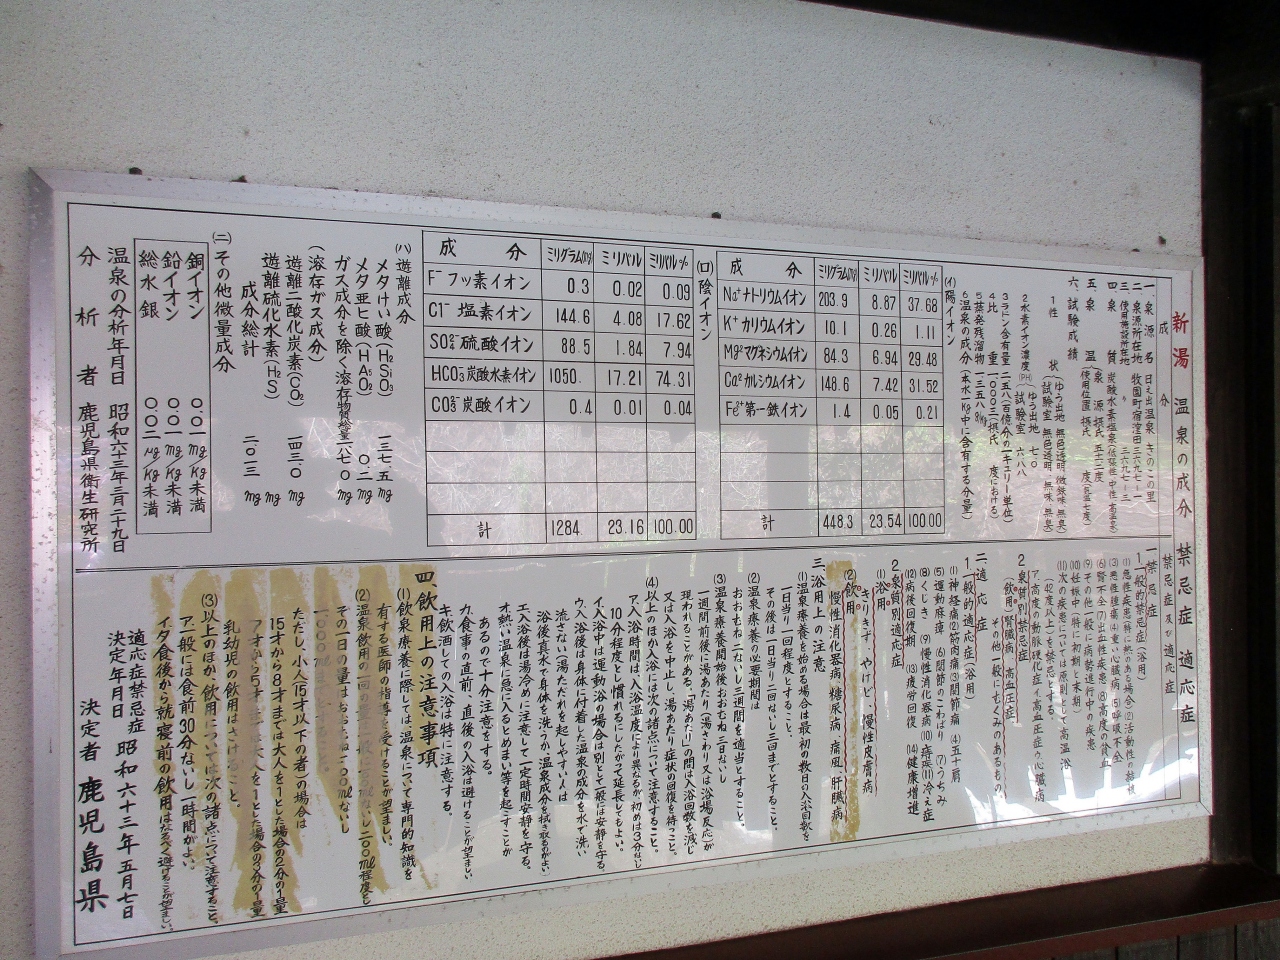 新湯 温泉の成分 禁忌症 適応症
成分
一 泉源名 日の出温泉 きのこの里
二 泉源所在地 牧園町宿窪田三六九七ー一
三 使用施設所在地 〃 三六九七ー三
四 泉質 炭酸水素塩泉(低張性 中性 高温泉)
五 泉温
六 試験成績
1 性状 (ゆう出地 無色透明 微鉄味 無臭)
(試験室 無色透明 無味 無臭)
2 水素イオン濃度(PH) (ゆう出地 七・〇)
(試験室 六・八八)
3 ラドン含有量
4 比重
5 蒸発残溜物
6 温泉の成分(本水1Kg中に含有する分量)
(イ)陽イオン
成分 ミリグラム(mg) ミリバル ミリバル%
Na⁺ナトリウムイオン 203.9 8.87 37.68
K⁺カリウムイオン 10.1 0.26 1.11
Mg²⁺マグネシウムイオン 84.3 6.94 29.48
Ca²⁺カルシウムイオン 148.6 7.42 31.52
Fe²⁺第一鉄イオン 1.4 0.05 0.21
計 448.3 23.54 100.00
(ロ)陰イオン
成分 ミリグラム(mg) ミリバル ミリバル%
F⁻フッ素イオン 0.3 0.02 0.09
Cl⁻塩素イオン 144.6 4.08 17.62
SO₄²⁻硫酸イオン 88.5 1.84 7.94
HCO₃⁻炭酸水素イオン 1050. 17.21 74.31
CO₃²⁻炭酸イオン 0.4 0.01 0.04
計 1284. 23.16 100.00
(ハ)遊離成分
メタけい酸(H₂SiO₃) 一三七・五mg
メタ亜ヒ酸(HAsO₂) 〇・二mg
ガス成分を除く溶存物質総量 一八七〇mg
(溶存ガス成分)
遊離二酸化炭素(CO₂) 一四三・〇mg
遊離硫化水素(H₂S) mg
成分総計 二〇一三mg
(ニ)その他微量成分
銅イオン 〇・〇一mg/kg未満
鉛イオン 〇・〇一mg/kg未満
総水銀 〇・〇〇二μg/kg未満
温泉の分析年月日 昭和六十三年三月二十九日
分析者 鹿児島県衛生研究所
禁忌症及び適応症
一 禁忌症
1 一般的禁忌症(浴用)
(1)急性疾患(特に熱のある場合)(2)活動性の結核
(3)悪性腫瘍(4)重い心臓病(5)呼吸不全
(6)腎不全(7)出血性疾患(8)高度の貧血
(9)その他一般に病勢進行中の疾患
(10)妊娠中(特に初期と末期)
(11)次の疾患については原則として高温浴
(42度以上)を禁忌とする。
ア、高度の動脈硬化症 イ、高血圧症 ウ、心臓病
2 泉質別禁忌症
(飲用) 腎臓病 高血圧症
その他一般にむくみのあるもの
二 適応症
1 一般的適応症(浴用)
(1)神経痛(2)筋肉痛(3)関節痛(4)五十肩
(5)運動麻痺(6)関節のこわばり(7)うちみ
(8)くじき(9)慢性消化器病(10)痔疾(11)冷え症
(12)病後回復期(13)疲労回復(14)健康増進
2 泉質別適応症
(1)浴用
きりきず、やけど、慢性皮膚病
(2)飲用
慢性消化器病 糖尿病 痛風 肝臓病
三 浴用上の注意
(1)温泉療養を始める場合は最初の数日の入浴回数を
一日当り一回程度とすること。
その後は一日当り二回ないし三回までとすること。
(2)温泉療養の必要期間は
おおむね二ないし三週間を適当とすること。
(3)温泉療養開始後おおむね三日ないし
一週間前後に湯あたり(湯さわり又は浴場反応)が
現われることがある。「湯あたり」の間は入浴回数を減じ
又は入浴を中止し、湯あたり症状の回復を待つこと。
(4)以上のほか入浴には次の諸点について注意すること。
ア、入浴時間は入浴温度により異なるが初めは3分ないし
10分程度とし慣れるにしたがって延長してもよい。
イ、入浴中は運動浴の場合は別として一般には安静を守る。
ウ、入浴後は身体に付着した温泉の成分を水で洗い
流さない(湯ただれを起しやすい人は
浴後真水で身体を洗うか温泉成分を拭き取るのがよい)
エ、入浴後は湯冷めに注意して一定時間安静を守る。
オ、熱い温泉に急に入るとめまい等を起すことが
あるので十分注意をする。
カ、食事の直前、直後の入浴は避けることが望ましい
キ、飲酒しての入浴は特に注意する。
四、飲用上の注意事項
(1)飲泉療養に際しては、温泉について専門的知識を
有する医師の指導を受けることが望ましい。
(2)温泉飲用の一回の量は一般に一〇〇mlないし二〇〇ml程度とし
その一日の量はおおむね二〇〇mlないし
一〇〇〇mlまでとすること。
ただし、小人15才以下の者の場合は
15才から8才までは大人を1とした場合の2分の1量
7才から5才までは大人を1とした場合の3分の1量
乳幼児の飲用はさけること。
(3)以上のほか、飲用については次の諸点について注意すること。
ア、一般には食前30分ないし一時間がよい。
イ、夕食後から就寝前の飲用はなるべく避けることが望ましい。
適応症禁忌症
決定年月日 昭和六十三年五月七日
決定者 鹿児島県